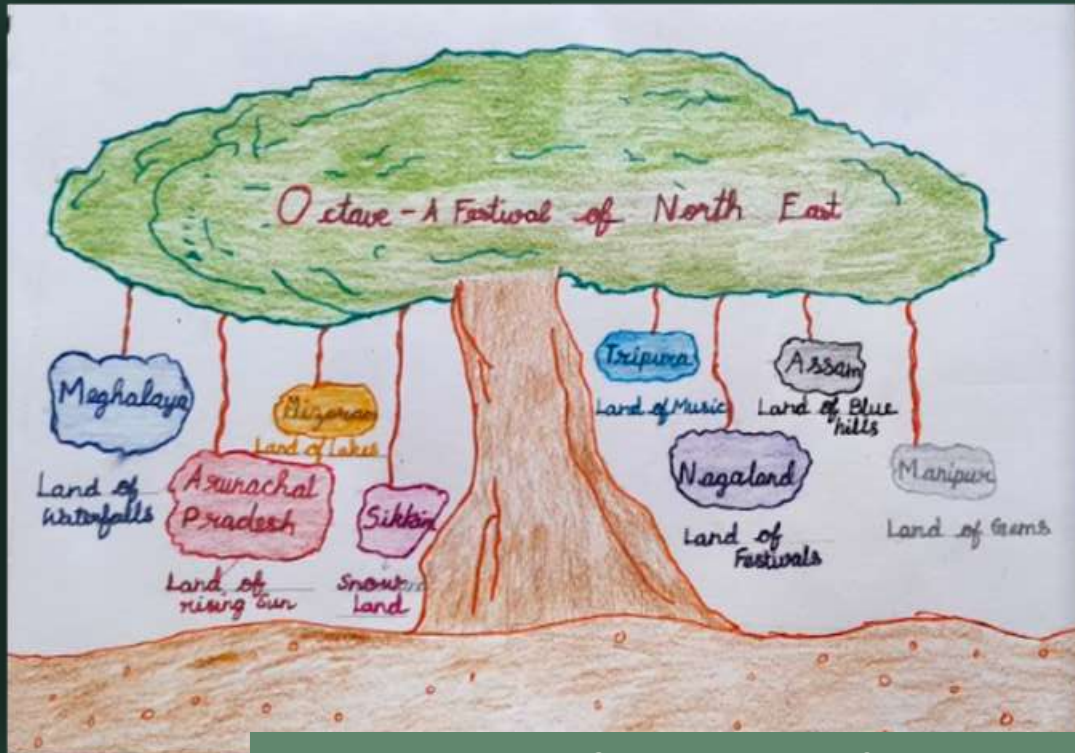 Octave - A Festival of North East
Meghalaya
Land of
Waterfalls
Arunachal
Pradesh
Land of
rising Sun
Mizoram
Land of Lakes
Sikkim
Snow
Land
Tripura
Land of Music
Nagaland
Land of
Festivals
Assam
Land of Blue
hills
Manipur
Land of Gems